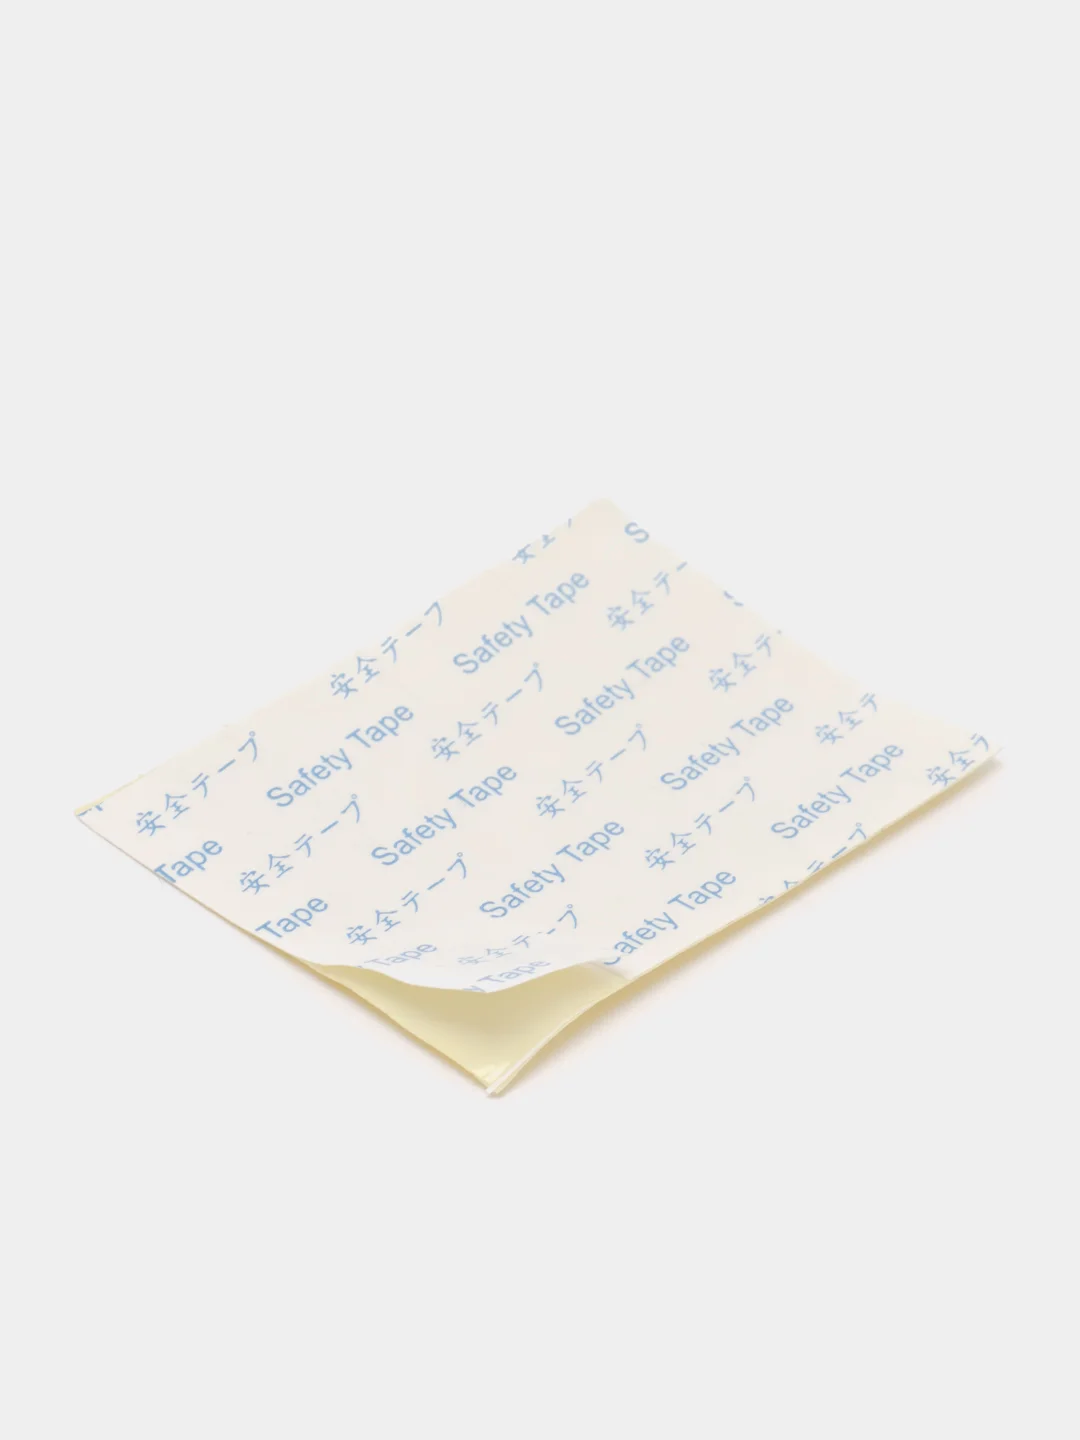 安全テープ
Safety Tape
安全テー
安全テープ
Safety Tape
安全テープ
Safety Tape
安全テー
安全テープ
Safety Tape
安全テープ
Safety Tape
安全
Tape
安全テープ
Safety Tape
安全テープ
Safety Tape
安全
Tape
安全テープ
Safety Tape
安全テープ
Tape
安全テープ
afety Tape
y Tape